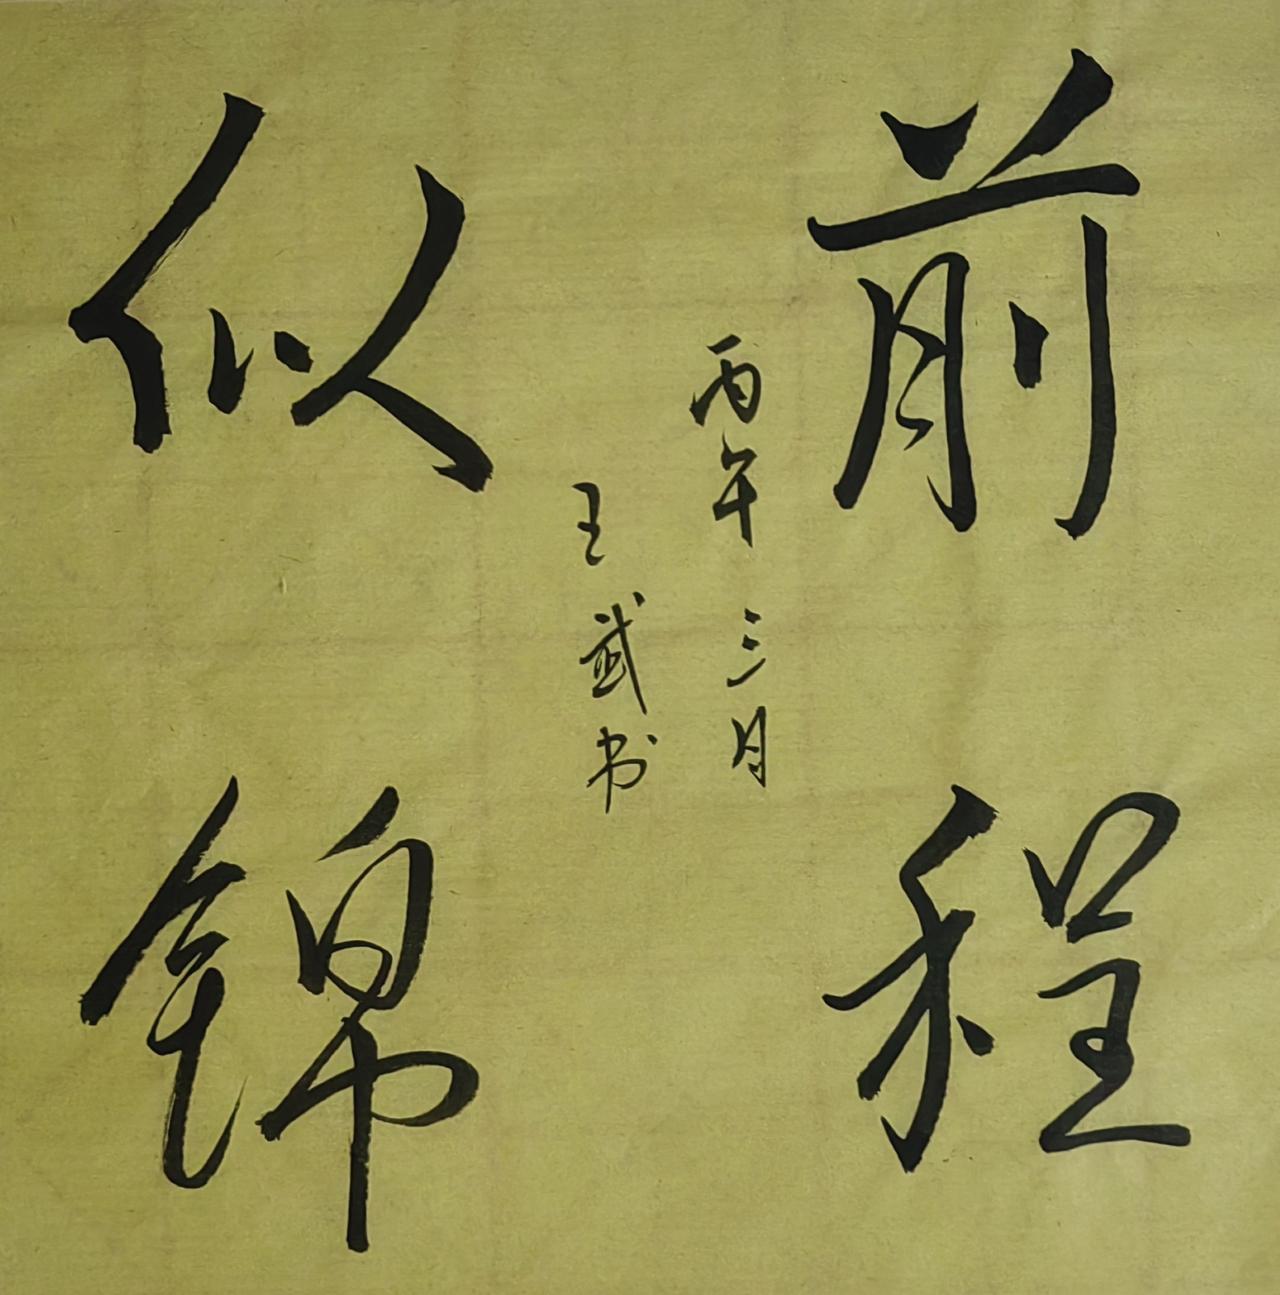 前程
丙午三月
王武书
似锦